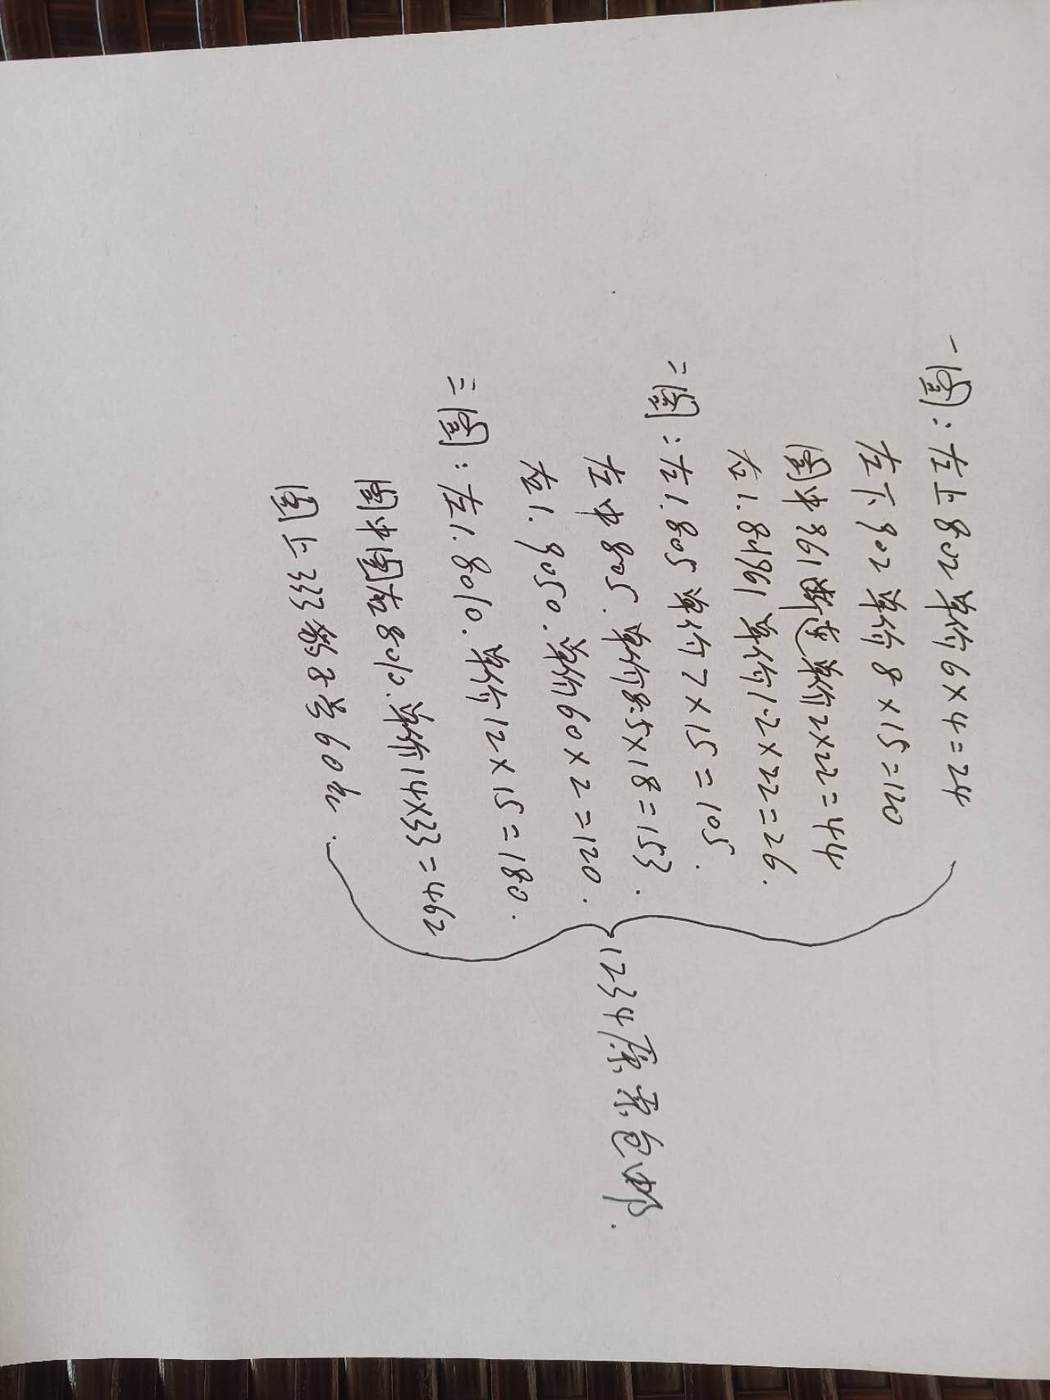 一图：左上802单价6×4=24
左下902单价8×15=120
图中861断连单价2×22=44
右1.84961单价1.2×22=26.
二图：左1.805单价7×15=105.
左中805.单价8.5×18=153.
右1.9050.单价60×2=120.
三图：左1.8010.单价12×15=180.
图中图右8010.单价14×33=462
图上333 60
1234
包邮.